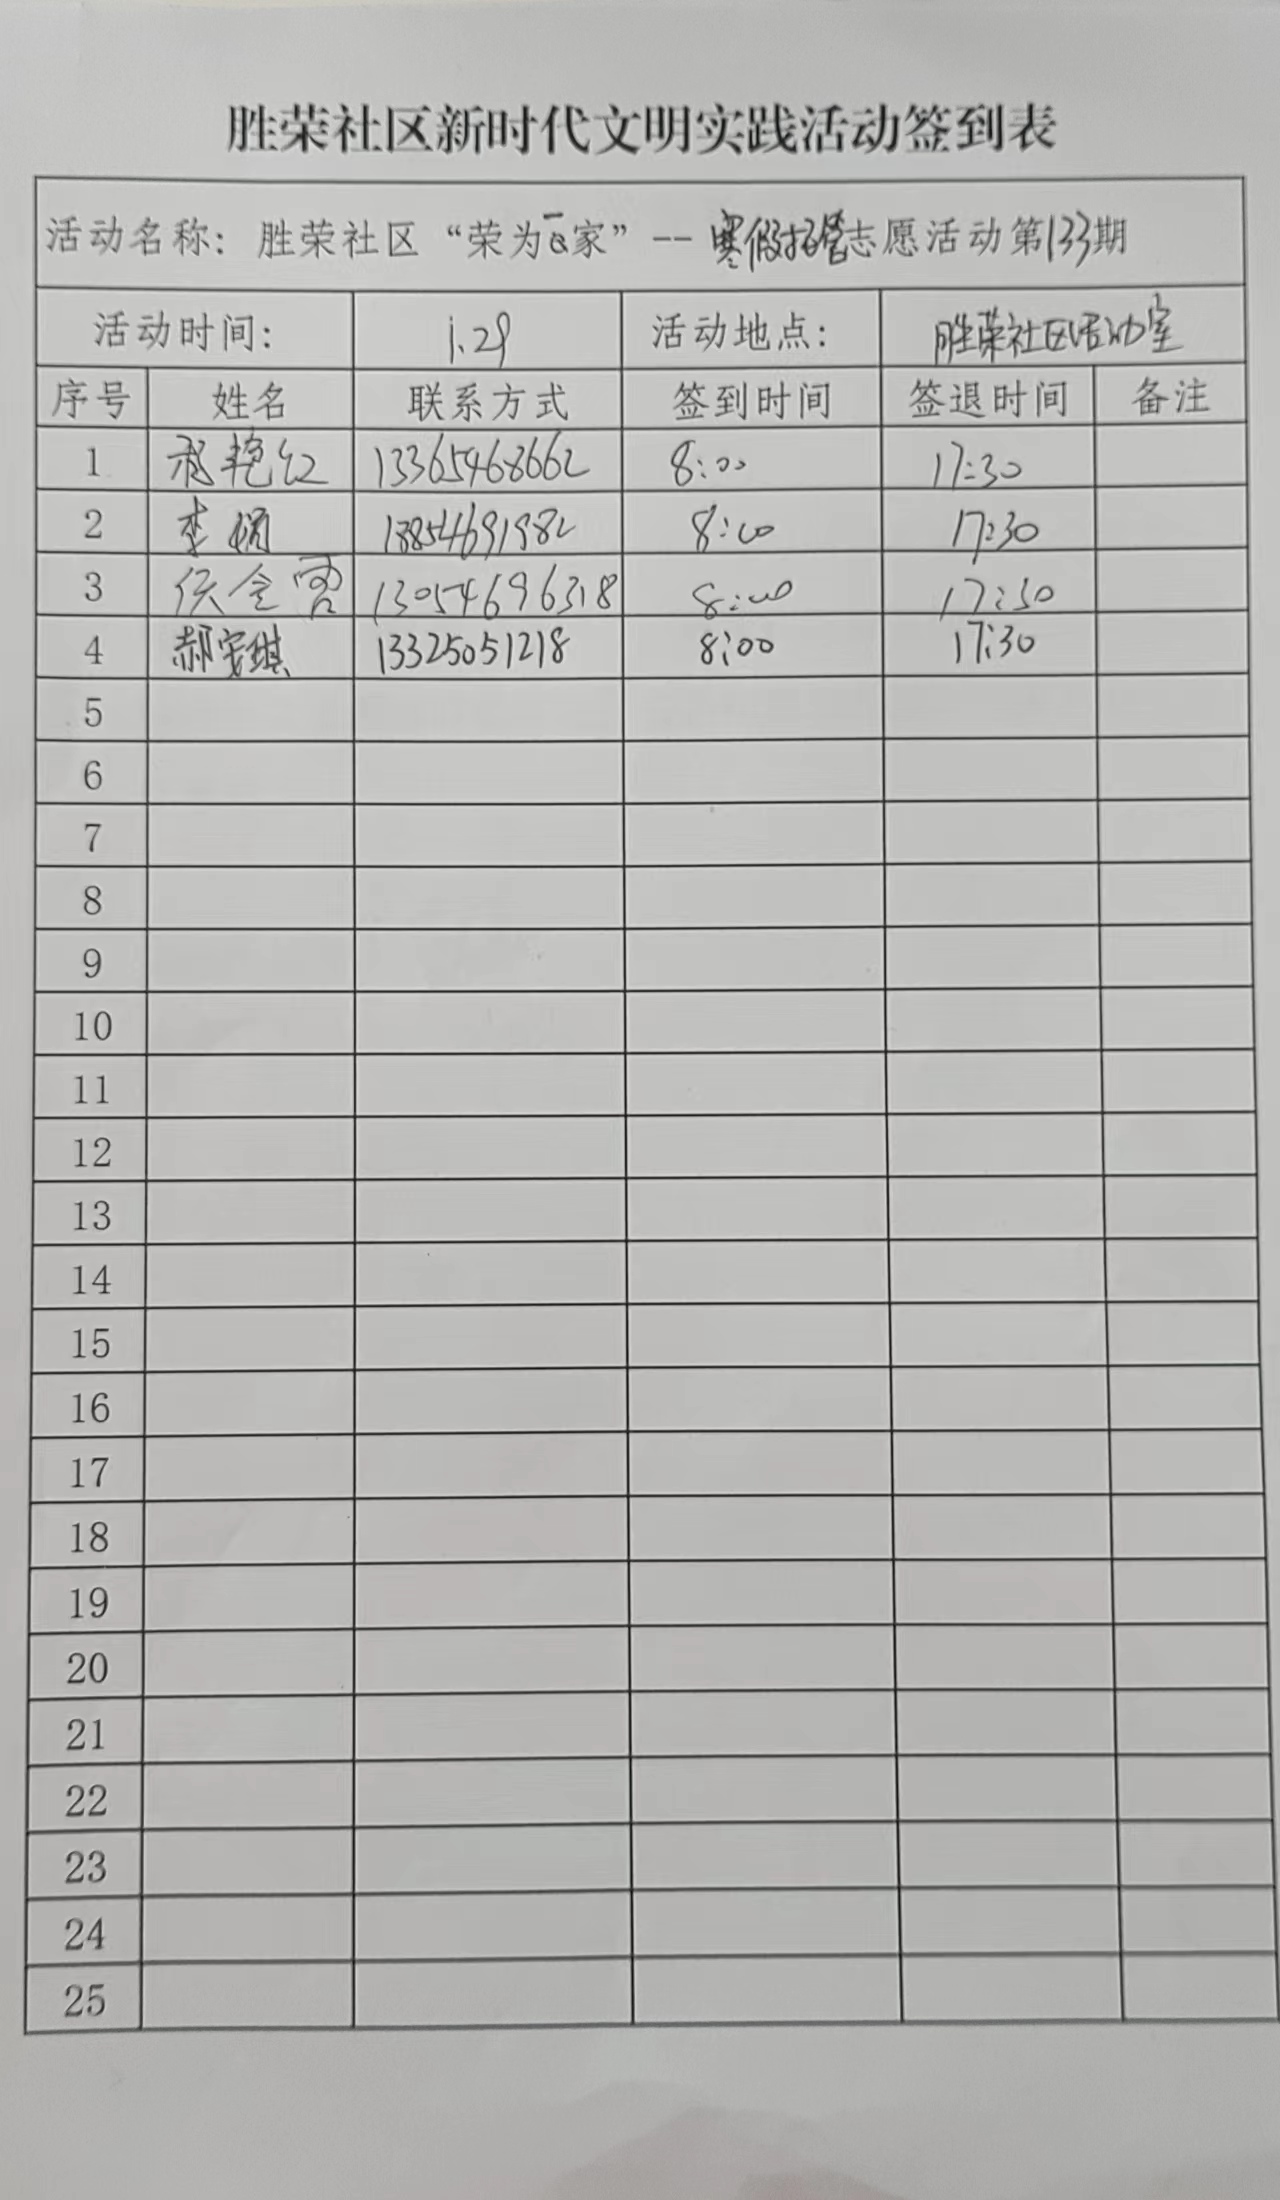 胜荣社区新时代文明实践活动签到表
活动名称：胜荣社区“荣为一家”--寒假托管志愿活动第133期
活动时间： 1.29 活动地点： 胜荣社区活动室
序号 姓名 联系方式 签到时间 签退时间 备注
1 艳红 13365468662 8:00 17:30
2 李娟 13854691982 8:00 17:30
3 13054696318 8:00 17:30
4 郝安琪 13325051218 8:00 17:30
5
6
7
8
9
10
11
12
13
14
15
16
17
18
19
20
21
22
23
24
25